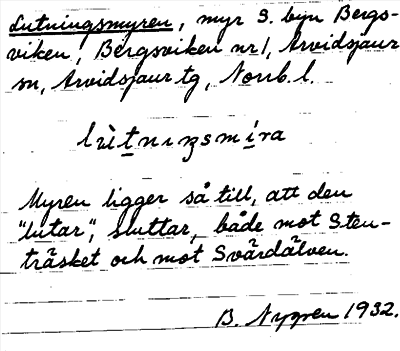 Lutningsmyren, myr S. byn Bergs-
viken, Bergsviken nr 1, Arvidsjaur
sn, Arvidsjaur tg, Norrb. l.
lùtnıŋsmíra
Myren ligger så till, att den
"lutar", sluttar, både mot Sten-
träsket och mot Svärdälven.
B. Nygren 1932.